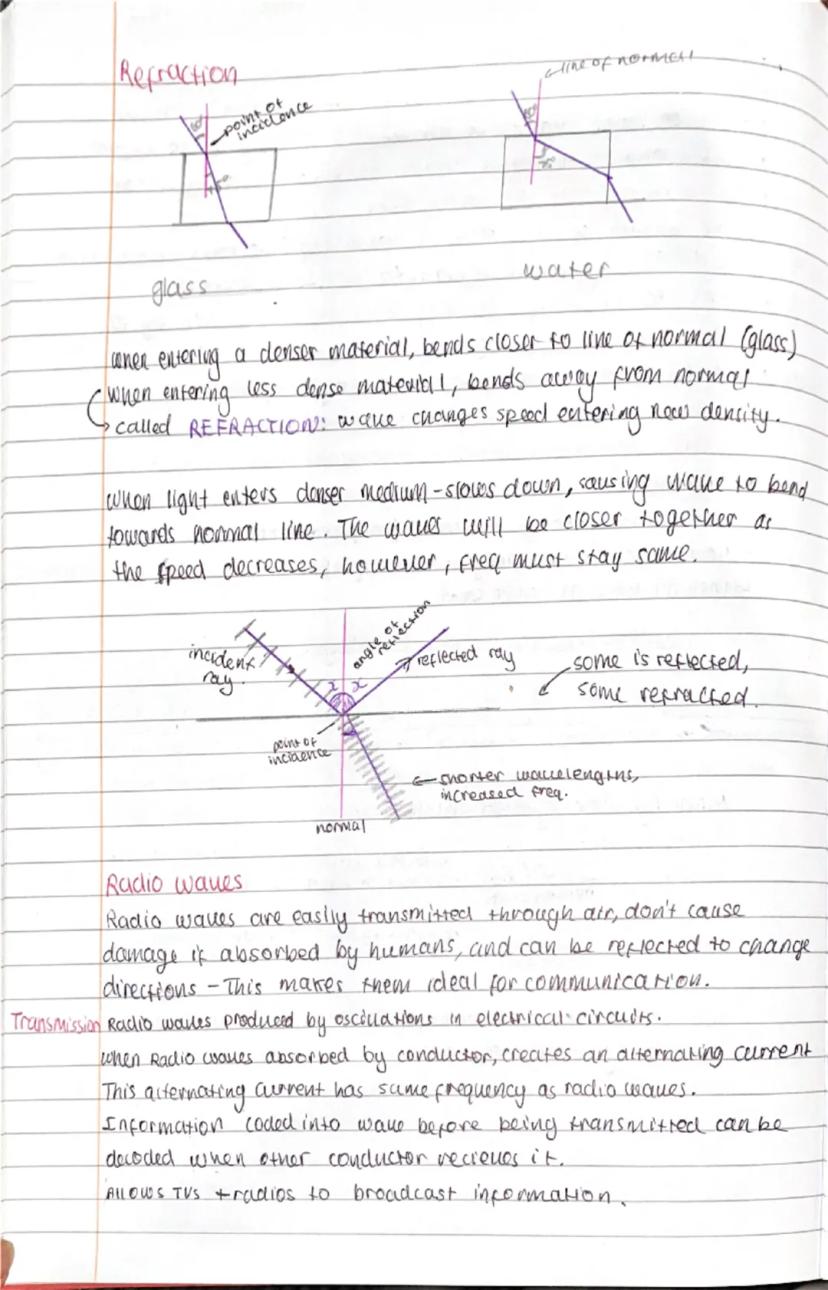 Refraction
line of normal
point of
incidence
glass
water
when entering a denser material, bends closer to line of normal (glass)
when entering less dense material, bends away from normal
called REFRACTION: wave changes speed entering new density.
When light enters denser medium - slows down, causing wave to bend
towards normal line. The waves will be closer together as
the speed decreases, however, freq must stay same.
incident
ray.
angle of
reflection
reflected ray
some is reflected,
some refracted.
x x
point of
incidence
shorter wavelengths,
increased freq.
normal
Radio waves
Radio waves are easily transmitted through air, don't cause
damage if absorbed by humans, and can be reflected to change
directions - This makes them ideal for communication.
Transmission Radio waves produced by oscillations in electrical circuits.
When Radio waves absorbed by conductor, creates an alternating current
This alternating current has same frequency as radio waves.
Information coded into wave before being transmitted can be
decoded when other conductor recieves it.
Allows TVs + radios to broadcast information.